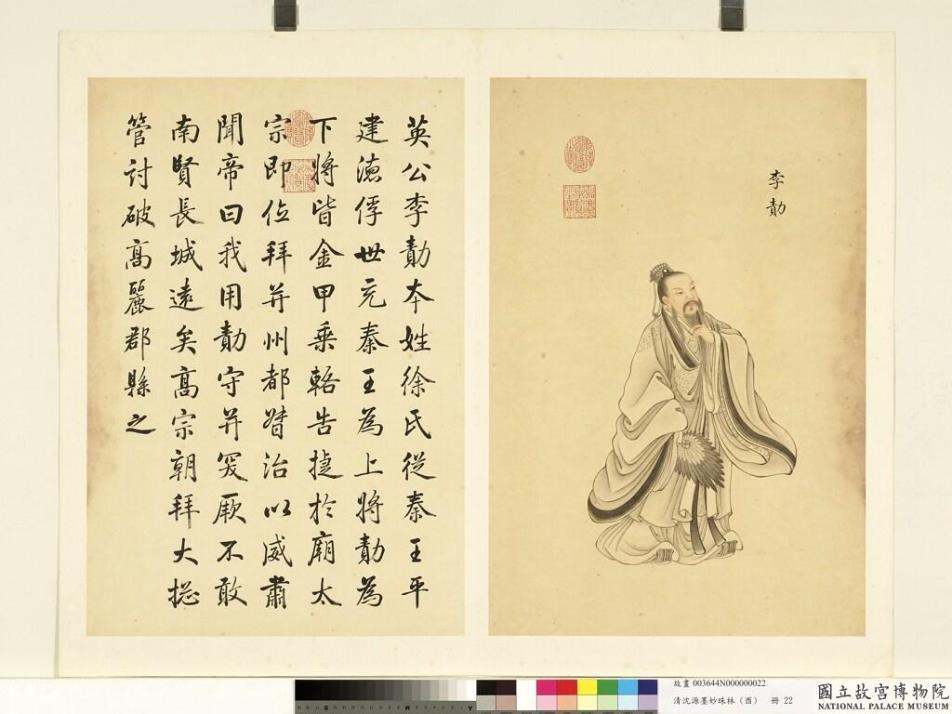 李勣
英公李勣本姓徐氏從秦王平
建德俘世充秦王為上將勣為
下將皆金甲乘輅告捷於廟太
宗即位拜并州都督治以威肅
聞帝曰我用勣守并突厥不敢
南賢長城遠矣髙宗朝拜大捴
管討破髙麗郡縣之
故畫 003644N000000022
清沈源墨妙珠林（酉） 冊 22
國立故宮博物院
NATIONAL PALACE MUSEUM